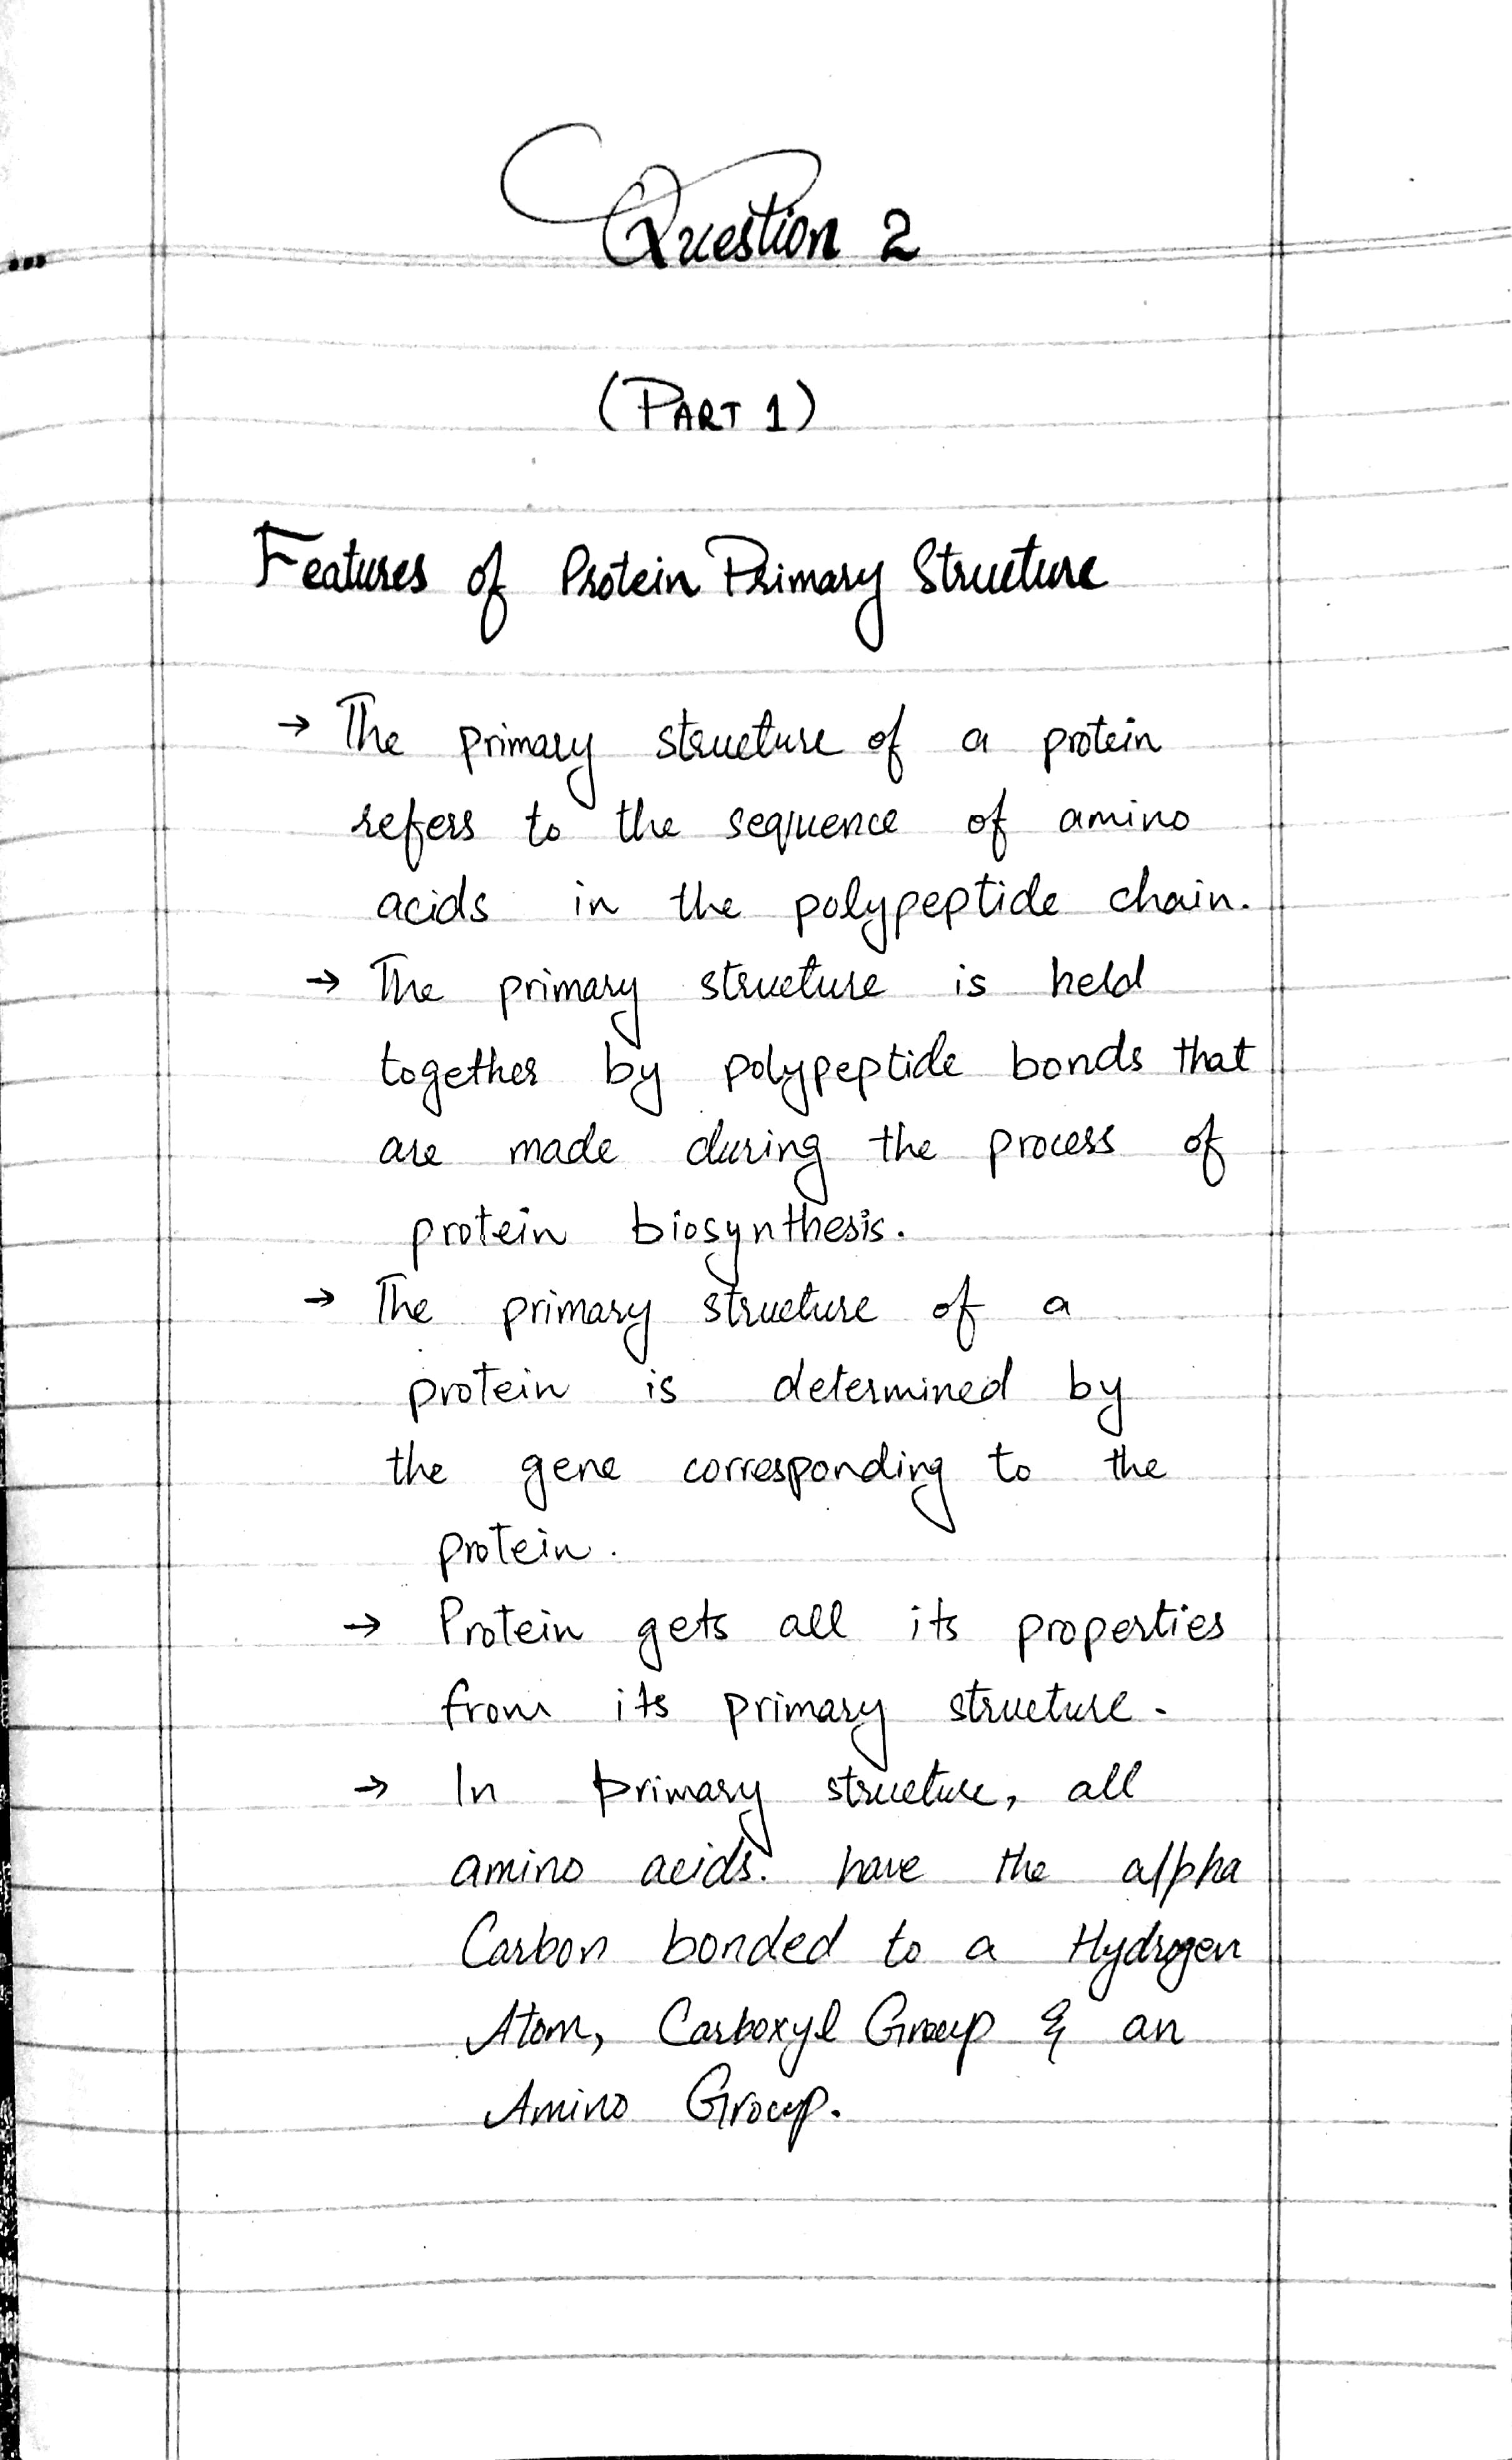 Question 2
(PART 1)
Features of Protein Primary Structure
→ The primary structure of a protein
refers to the sequence of amino
acids in the polypeptide chain.
→ The primary structure is held
together by polypeptide bonds that
are made during the process of
protein biosynthesis.
→ The primary structure of a
protein is determined by
the gene corresponding to the
protein.
→ Protein gets all its properties
from its primary structure.
→ In primary structure, all
amino acids. have the alpha
Carbon bonded to a Hydrogen
Atom, Carboxyl Group & an
Amino Group.